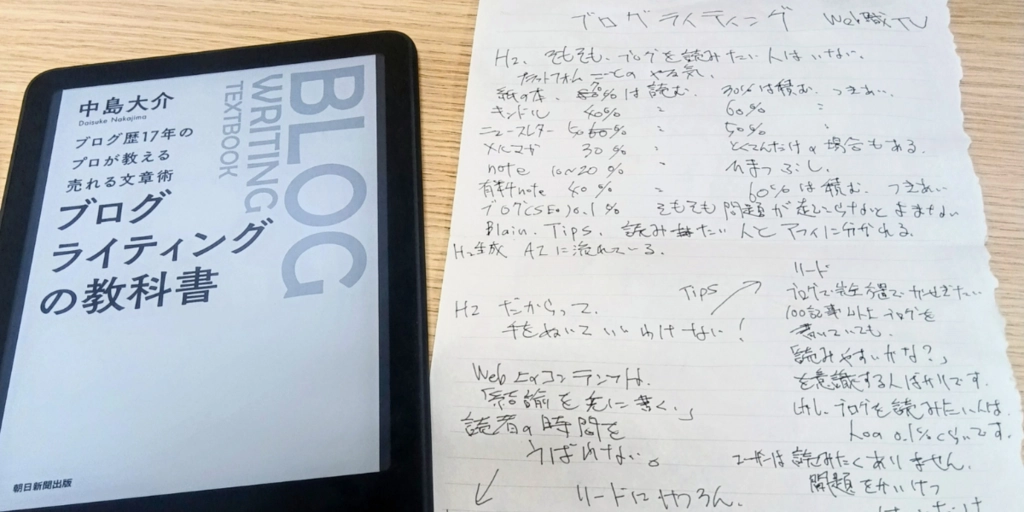 中島大介
Daisuke Nakajima
ブログ歴17年の
プロが教える
売れる文章術
ブログ
ライティング
の教科書
BLOG
WRITING
TEXTBOOK
朝日新聞出版
ブログライティング Web職TV
H2、そもそも、ブログを読みたい人はいない。
プラットフォームごとのやる気、
紙の本、70%は読む、30%は積む、つきあい、
キンドル 40% 〃 60% 〃
ニュースレター 50% 〃 50% 〃
メルマガ 30% 〃 とくてんだけの場合もある。
note 10~20% 〃 ひまつぶし。
有料note 40% 〃 60%は積む、つきあい
ブログ(SEO)0.1% そもそも問題が起こらないとよまない
Brain、Tips、読みたい人とアフィに分かれる。
H2 生成AIに流れている。
H2 だからって、
手をぬいていいわけない!
Web上のコンテンツは、
「結論を先に書く。」
読者の時間を
うばわない。
リードにやつろん、
Tips
リード
ブログで完全放置でかせぎたい
100記事以上ブログを
書いていても、
「読みやすいかな?」
を意識する人ばかりです。
しかし、ブログを読みたい人は、
人口の0.1%くらいです。
ユーザーは読みたくありません。
問題をかいけつ